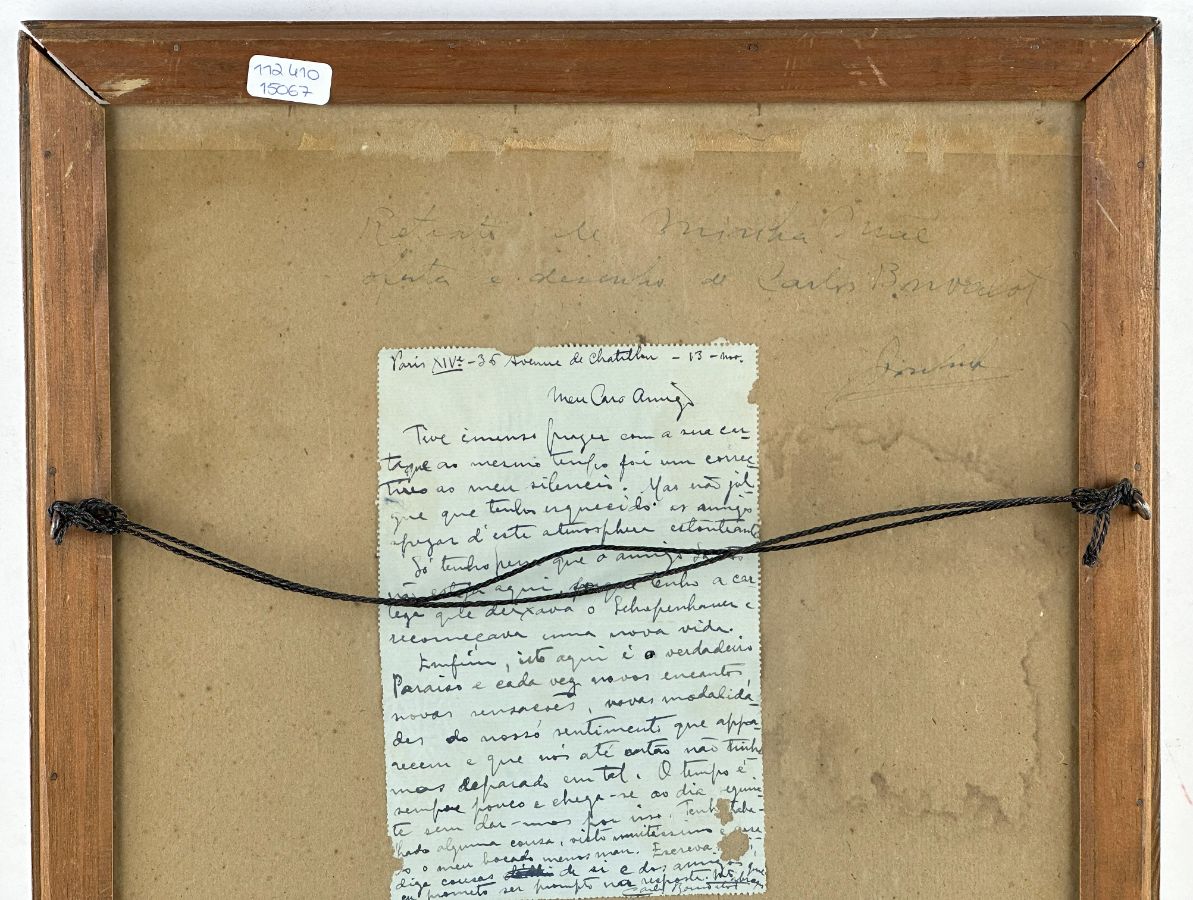 112410
15067
Retrato de Minha Mãe
e desenho de Carlos Bonvalot
Paris XIVe - 36 Avenue de Chatillon - 13 - nov.
Meu Caro Amigo
Tive imenso prazer com a sua car-
ta que ao mesmo tempo foi um correc-
tivo ao meu silencio. Mas não jul-
gue que tenho esquecido os amigos
apezar d'este atmosphera estonteante
Só tenho pena que o amigo
não esteja aqui, porque tenho a cer
teza que deixava o Schopenhauer e
recomeçava uma nova vida.
Emfim, isto aqui é o verdadeiro
Paraiso e cada vez novos encantos,
novas sensações, novas modalida-
des do nosso sentimento que appa-
recem e que nós até então não tinha
mos deparado em tal. O tempo é
sempre pouco e chega-se ao dia seguin-
te sem dar-mos por isso. Tenho traba-
lhado alguma cousa, visto muitissimo e
o meu bocado menos mau. Escreva
diga cousas de si e dos amigos, que
eu prometo ser prompto na resposta.
Carlos Bonvalot